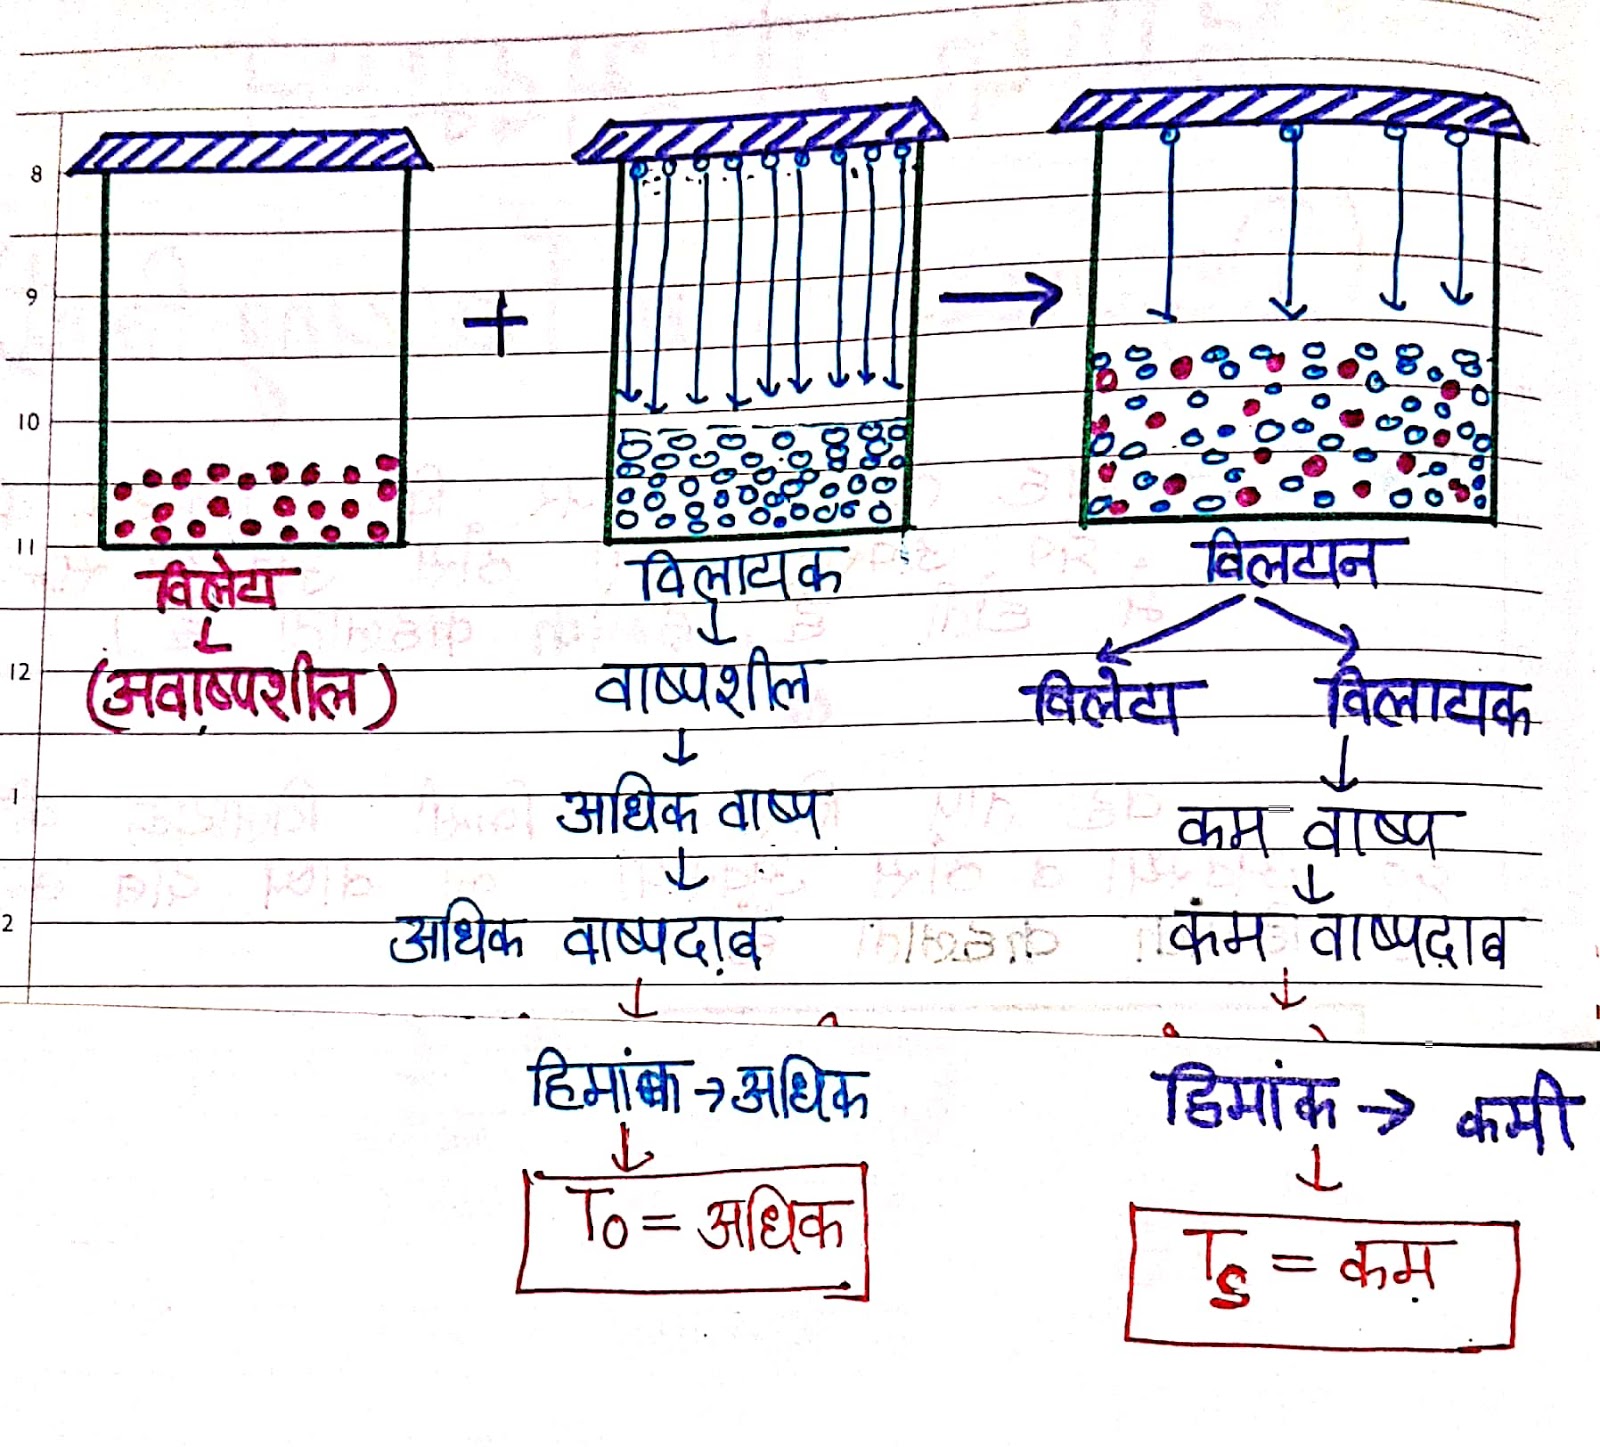 8
9
10
11
12
1
2
+ →
विलेय
↓
(अवाष्पशील)
विलायक
↓
वाष्पशील
↓
अधिक वाष्प
↓
अधिक वाष्पदाब
↓
हिमांक → अधिक
↓
T₀ = अधिक
विलयन
विलेय विलायक
↓
कम वाष्प
↓
कम वाष्पदाब
↓
हिमांक → कमी
↓
Tₛ = कम